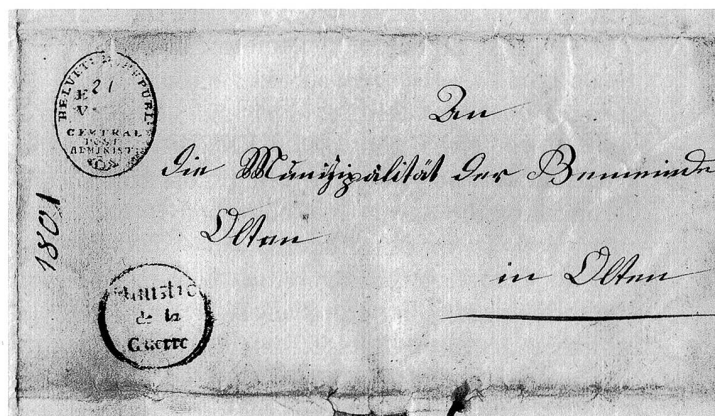 HELVET. REPUBL.
21
E
V
CENTRAL
POST
ADMINIST.
An
die Munizipalität der Gemeinde
Olten
in Olten
1801
Ministre
de la
Guerre